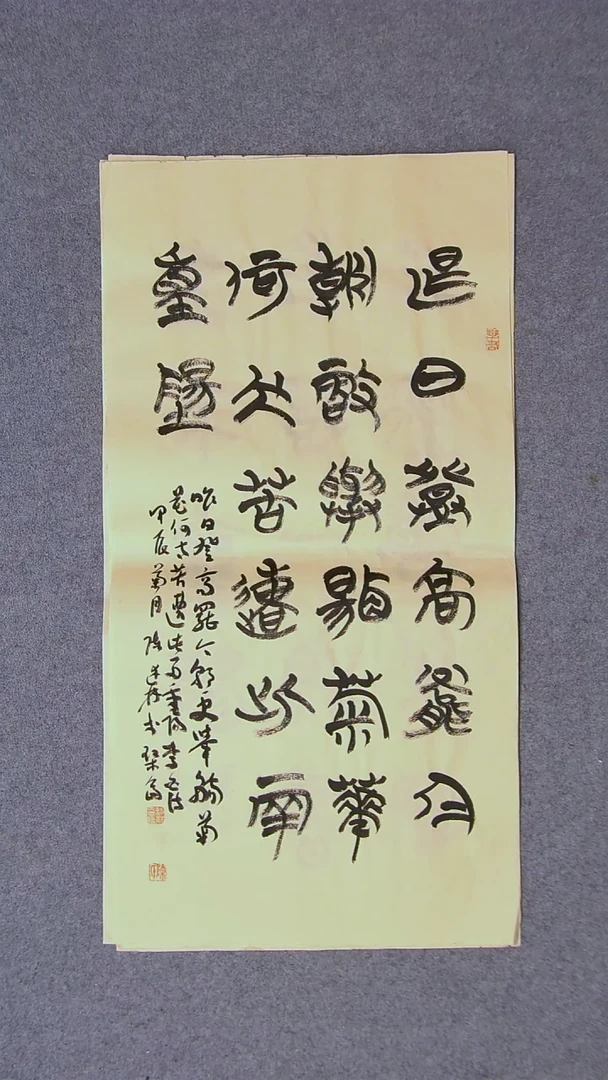 昨日登高罷今
朝更舉觴菊華
何太苦遭此兩
重陽
昨日登高罷今朝更舉觴菊
花何太苦遭此兩重陽李白詩
甲辰菊月陳書琴島